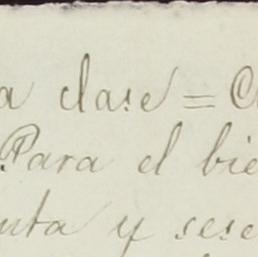 a clase =
Para el bie
uta y sese